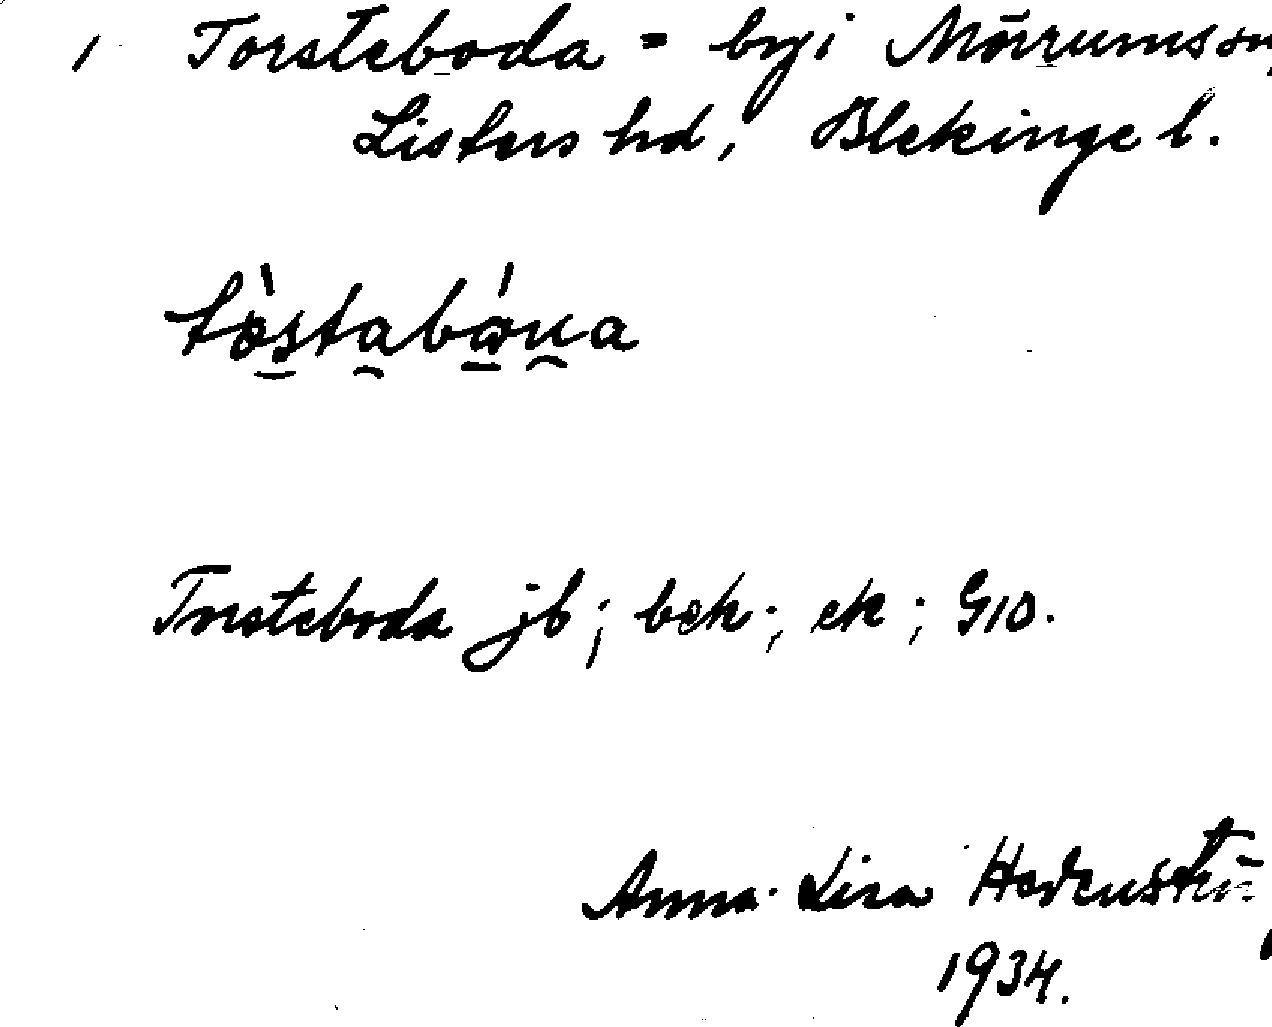 1 Torsteboda = by i Mörrums sn,
Listers hd, Blekinge l.
Torsteboda jb; bek; ek; G10.
Anna-Lisa
1934.